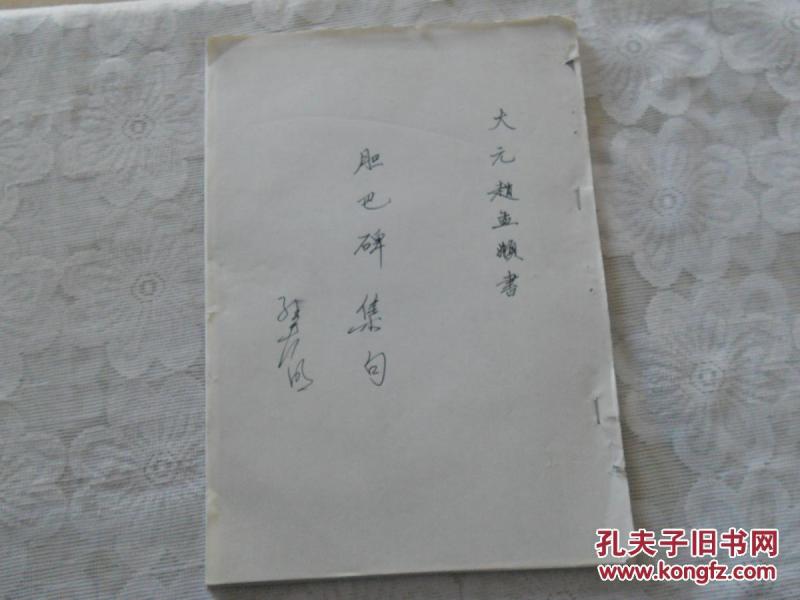 大元趙孟頫書
胆巴碑集句
孔夫子旧书网
www.kongfz.com